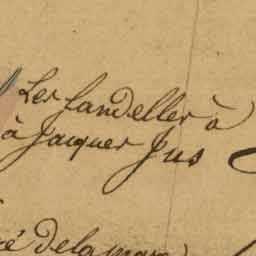 Les Landelles à
à Jacques Jus
é delamare